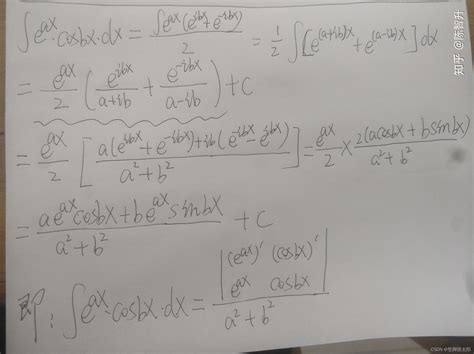 ∫e^{ax}·cosbx·dx = ∫e^{ax}(e^{ibx}+e^{-ibx})/2 = 1/2 ∫[e^{(a+ib)x}+e^{(a-ib)x}]dx
= e^{ax}/2 (e^{ibx}/(a+ib) + e^{-ibx}/(a-ib)) + C
= e^{ax}/2 [(a(e^{ibx}+e^{-ibx})+ib(e^{-ibx}-e^{ibx}))/(a²+b²)] = e^{ax}/2 × 2(acosbx+bsinbx)/(a²+b²)
= (ae^{ax}cosbx+be^{ax}sinbx)/(a²+b²) + C
即: ∫e^{ax}·cosbx·dx = |(e^{ax})' (cosbx)'; e^{ax} cosbx|/(a²+b²)
知乎 @陈智升